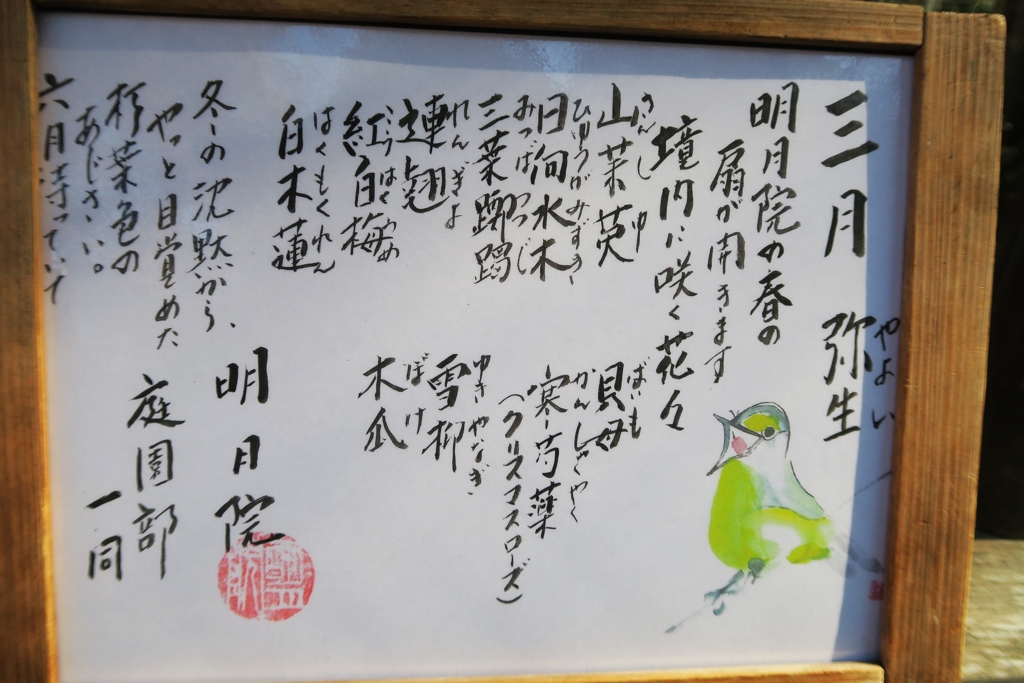 三月 弥生
やよい
明月院の春の
扇が開きます
境内に咲く花々
山茱萸
さんしゅゆ
日向水木
ひゅうがみずき
三葉躑躅
みつばつつじ
連翹
れんぎよ
紅白梅
こうはくうめ
白木蓮
はくもくれん
貝母
ばいも
寒芍薬
かんしゃくやく
(クリスマスローズ)
雪柳
ゆきやなぎ
木瓜
ぼけ
冬の沈黙から、
やっと目覚めた
杉葉色の
あじさい。
六月待っていて
明月院
庭園部
一同